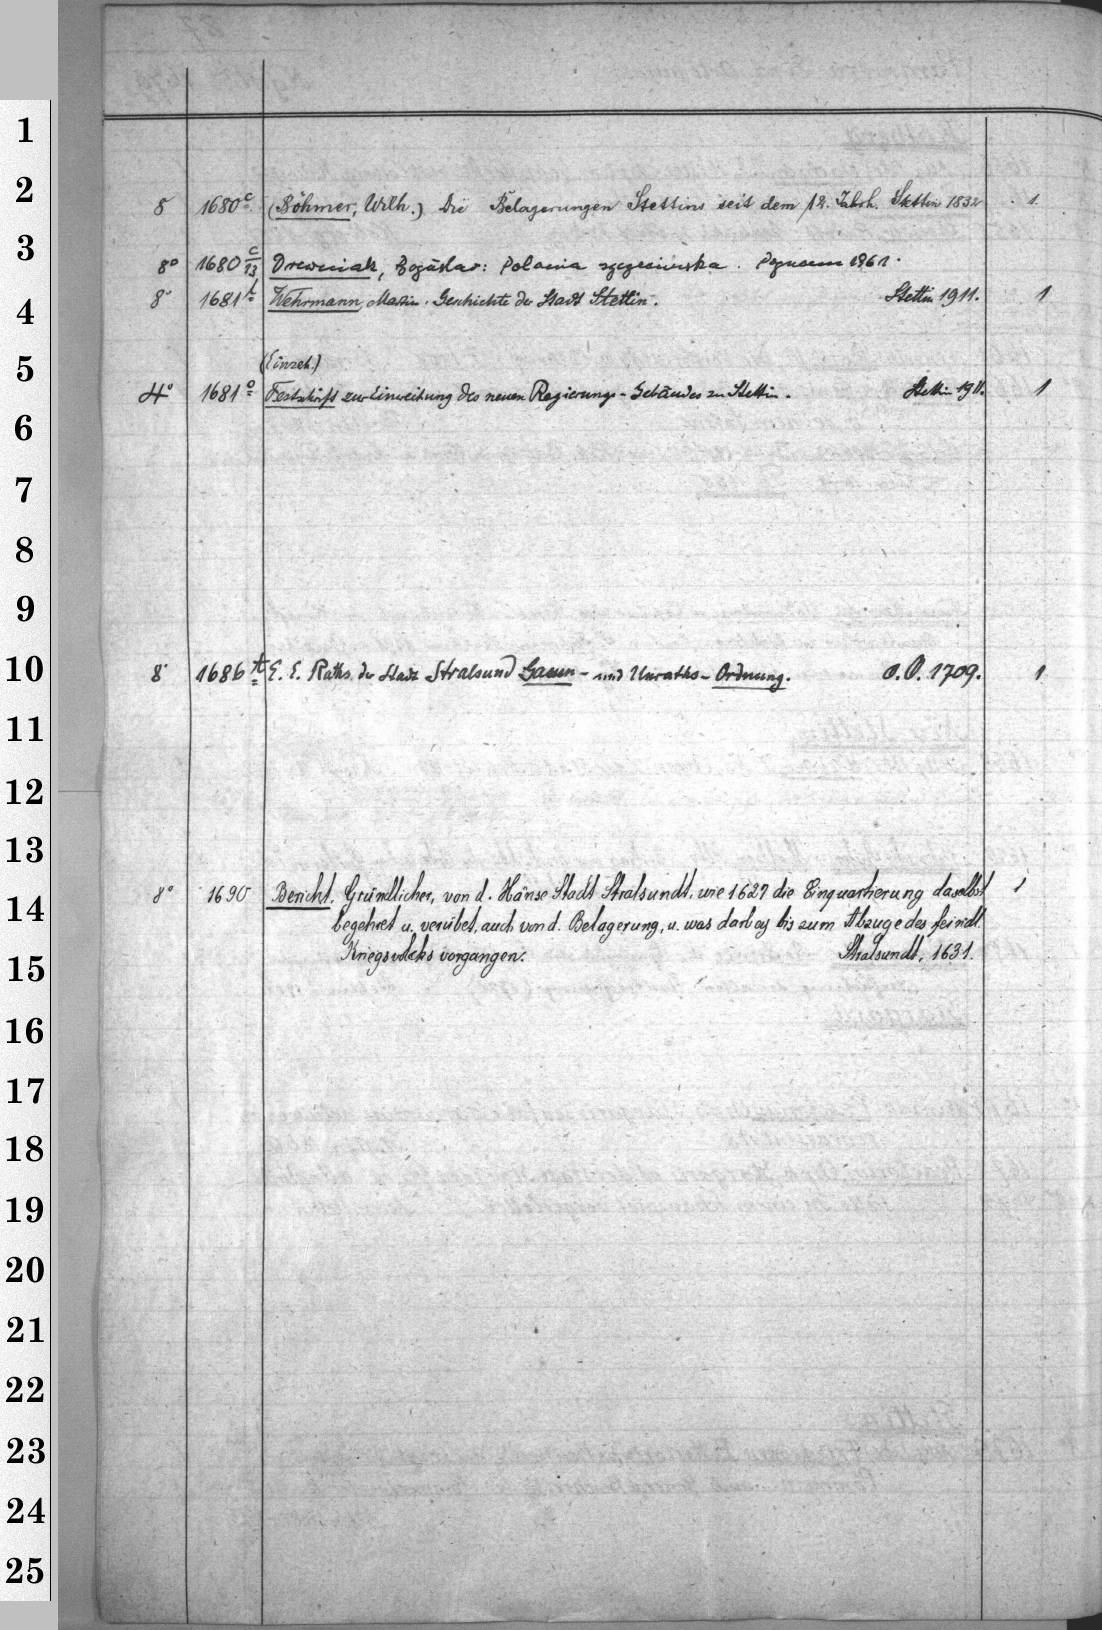 1
2
8 1680 c (Böhmer, Wilh.) Die Belagerungen Stettins seit dem 12. Jahrh. Stettin 1832 1.
3
8° 1680 c/13 Drewniak, Bogusław: Polonia szczecińska. Poznań 1961.
8° 1681 b Wehrmann, Martin. Geschichte der Stadt Stettin. Stettin 1911. 1
4
5
(Einzeh.)
4° 1681 e Festschrift zur Einweihung des neuen Regierungs-Gebäudes zu Stettin. Stettin 1911. 1
6
7
8
9
10
8° 1686 A E. E. Raths der Stadt Stralsund Gassen- und Unraths-Ordnung. o. O. 1709. 1
11
12
13
8° 1690 Bericht, Gründlicher, von d. Hänse Stadt Stralsundt, wie 1627 die Einquartierung daselbst 1
14
begehret u. verübet, auch von d. Belagerung, u. was darbey bis zum Abzuge des feindl.
Kriegsvolcks vorgangen. Stralsundt, 1631.
15
16
17
18
19
20
21
22
23
24
25